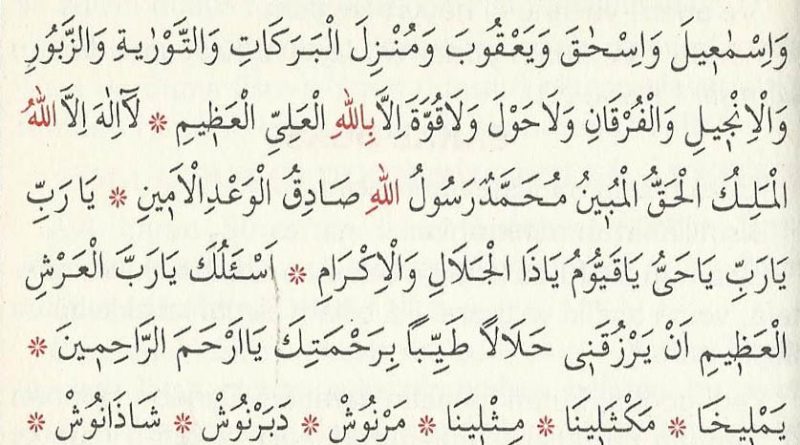 وَاِسْمٰعِيلَ وَاِسْحٰقَ وَيَعْقُوبَ وَمُنْزِلَ الْبَرَكَاتِ وَالتَّوْرٰيةِ وَالزَّبُورِ
وَالْاِنْجِيلِ وَالْفُرْقَانِ وَلَاحَوْلَ وَلَاقُوَّةَ اِلَّا بِاللّٰهِ الْعَلِىِّ الْعَظِيمِ * لَآاِلٰهَ اِلَّا اللّٰهُ
الْمَلِكُ الْحَقُّ الْمُبِينُ مُحَمَّدٌ رَسُولُ اللّٰهِ صَادِقُ الْوَعْدِ الْاَمِينِ * يَا رَبِّ
يَارَبِّ يَاحَىُّ يَاقَيُّومُ يَاذَا الْجَلَالِ وَالْاِكْرَامِ * اَسْئَلُكَ يَارَبَّ الْعَرْشِ
الْعَظِيمِ اَنْ يَرْزُقَنِى حَلَالاً طَيِّباً بِرَحْمَتِكَ يَااَرْحَمَ الرَّاحِمِينَ *
يَمْلِيخَا * مَكْثَلِينَا * مِثْلِينَا * مَرْنُوشْ * دَبَرْنُوشْ * شَاذَنُوشْ *